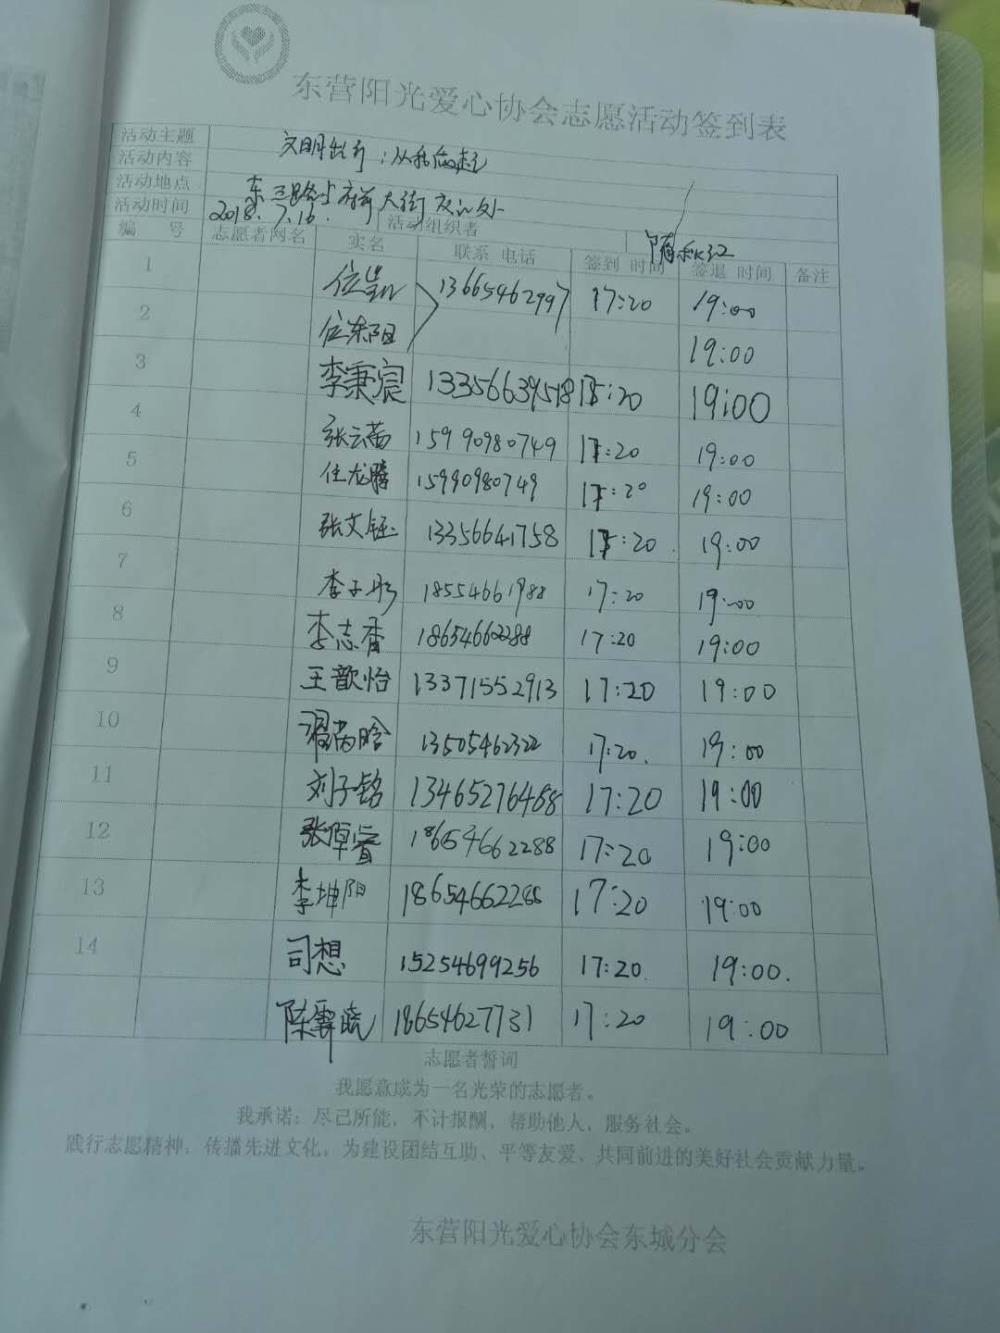 东营阳光爱心协会志愿活动签到表
活动主题
活动内容 文明出行:从我做起
活动地点 东三路与府前大街交汇处
活动时间 2018.7.16. 活动组织者
编 号 志愿者网名 实名 联系 电话 签到 时间 签退 时间 备注
1 位 13665462997 17:20 19:00
2 位东阳 19:00
3 李秉宸 13356639518 17:20 19:00
4 张云茜 15990980749 17:20 19:00
5 任龙腾 15990980749 17:20 19:00
6 张文钰 13356641758 17:20 19:00
7 李子彤 18554661988 17:20 19:00
8 李志香 18654662288 17:20 19:00
9 王歆怡 13371552913 17:20 19:00
10 13505462322 17:20. 19:00
11 刘子铭 13465276468 17:20 19:00
12 张倬睿 18654662288 17:20 19:00
13 李坤阳 18654662288 17:20 19:00
14 司想 15254699256 17:20 19:00.
陈霏晓 18654627731 17:20 19:00
志愿者誓词
我愿意成为一名光荣的志愿者。
我承诺:尽己所能,不计报酬,帮助他人,服务社会。
践行志愿精神,传播先进文化,为建设团结互助、平等友爱、共同前进的美好社会贡献力量。
东营阳光爱心协会东城分会